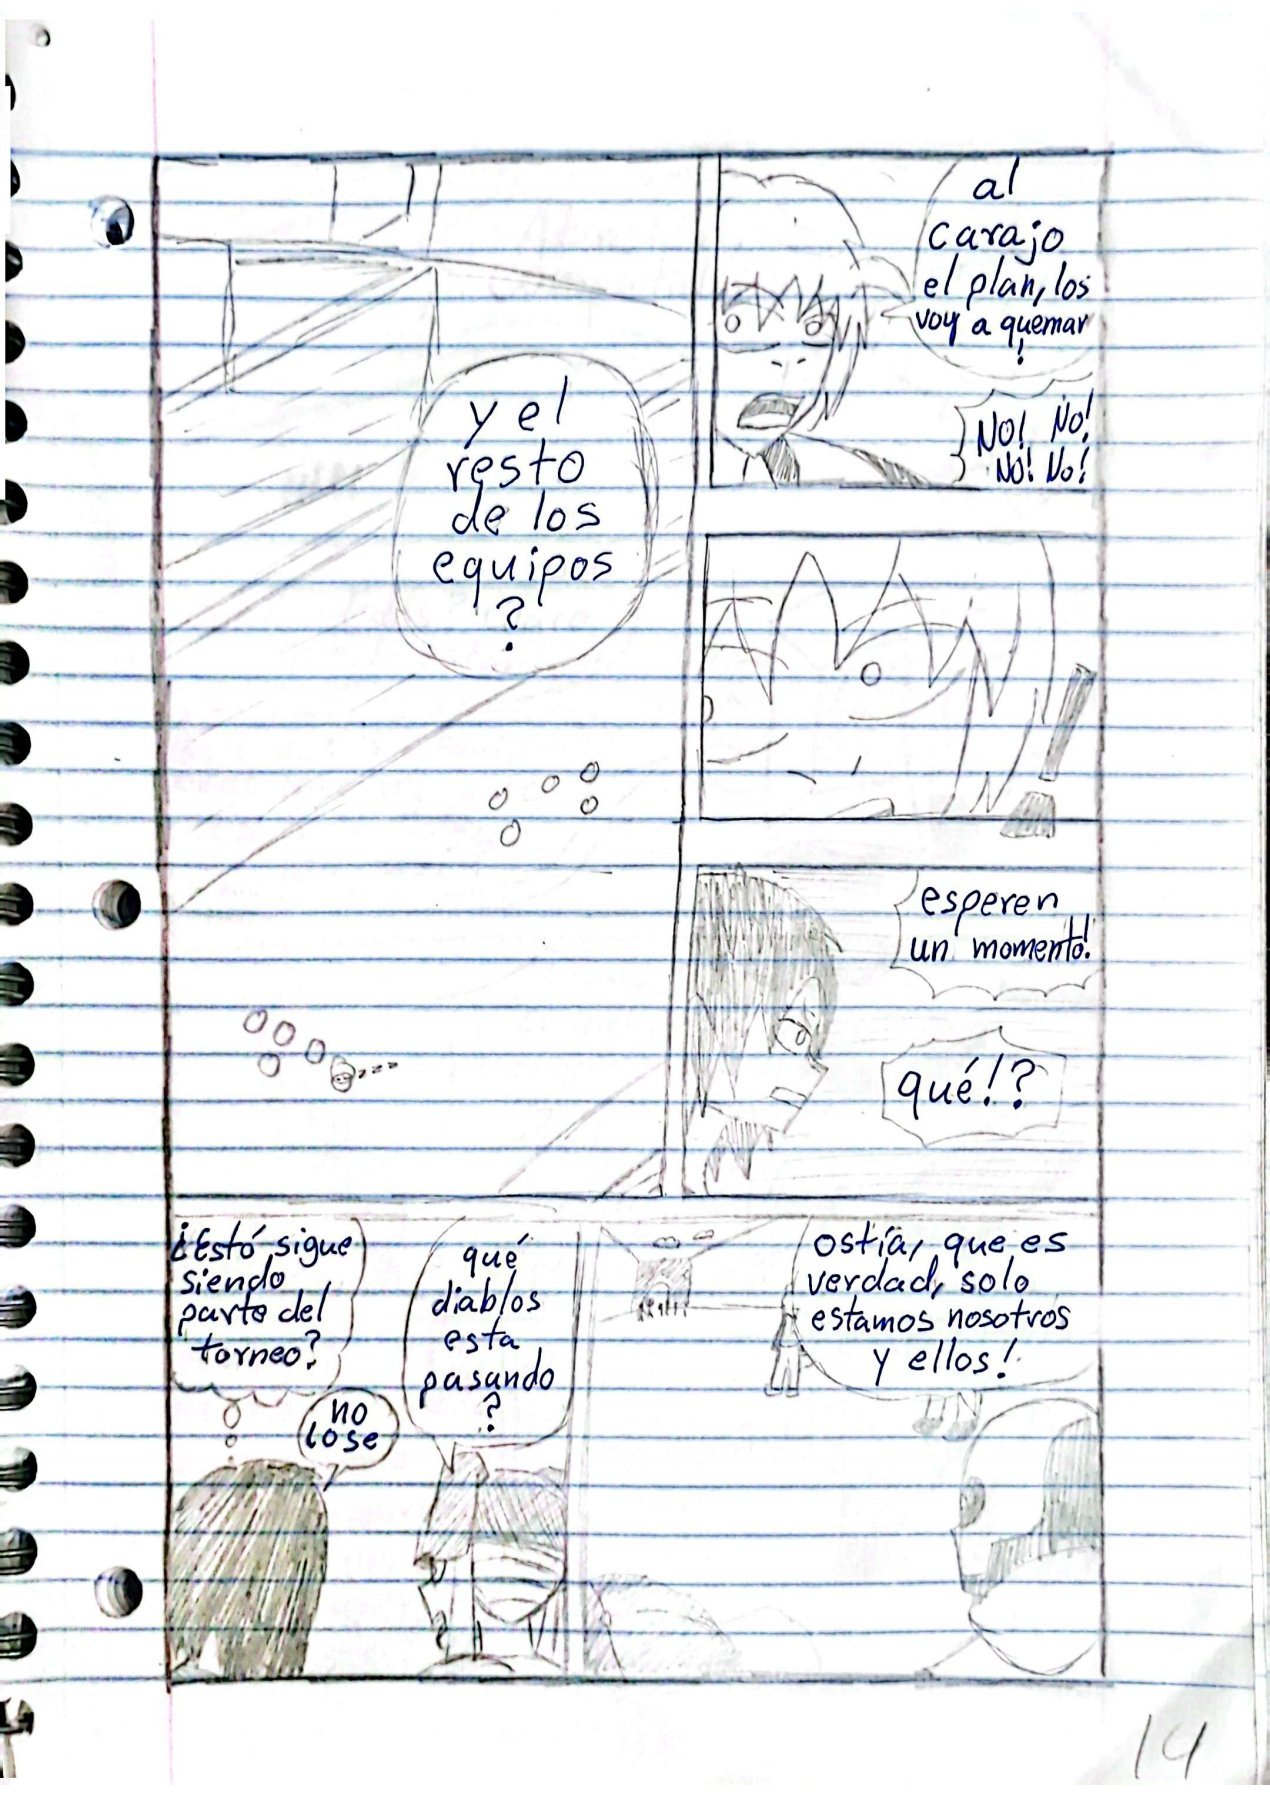 al
carajo
el plan, los
voy a quemar
!
NO! NO!
NO! NO!
!
esperen
un momento!
qué!?
y el
resto
de los
equipos
?
zzz
ostía, que es
verdad, solo
estamos nosotros
y ellos!
qué
diablos
esta
pasando
?
¿Estó sigue
siendo
parte del
torneo?
no
lo se
14